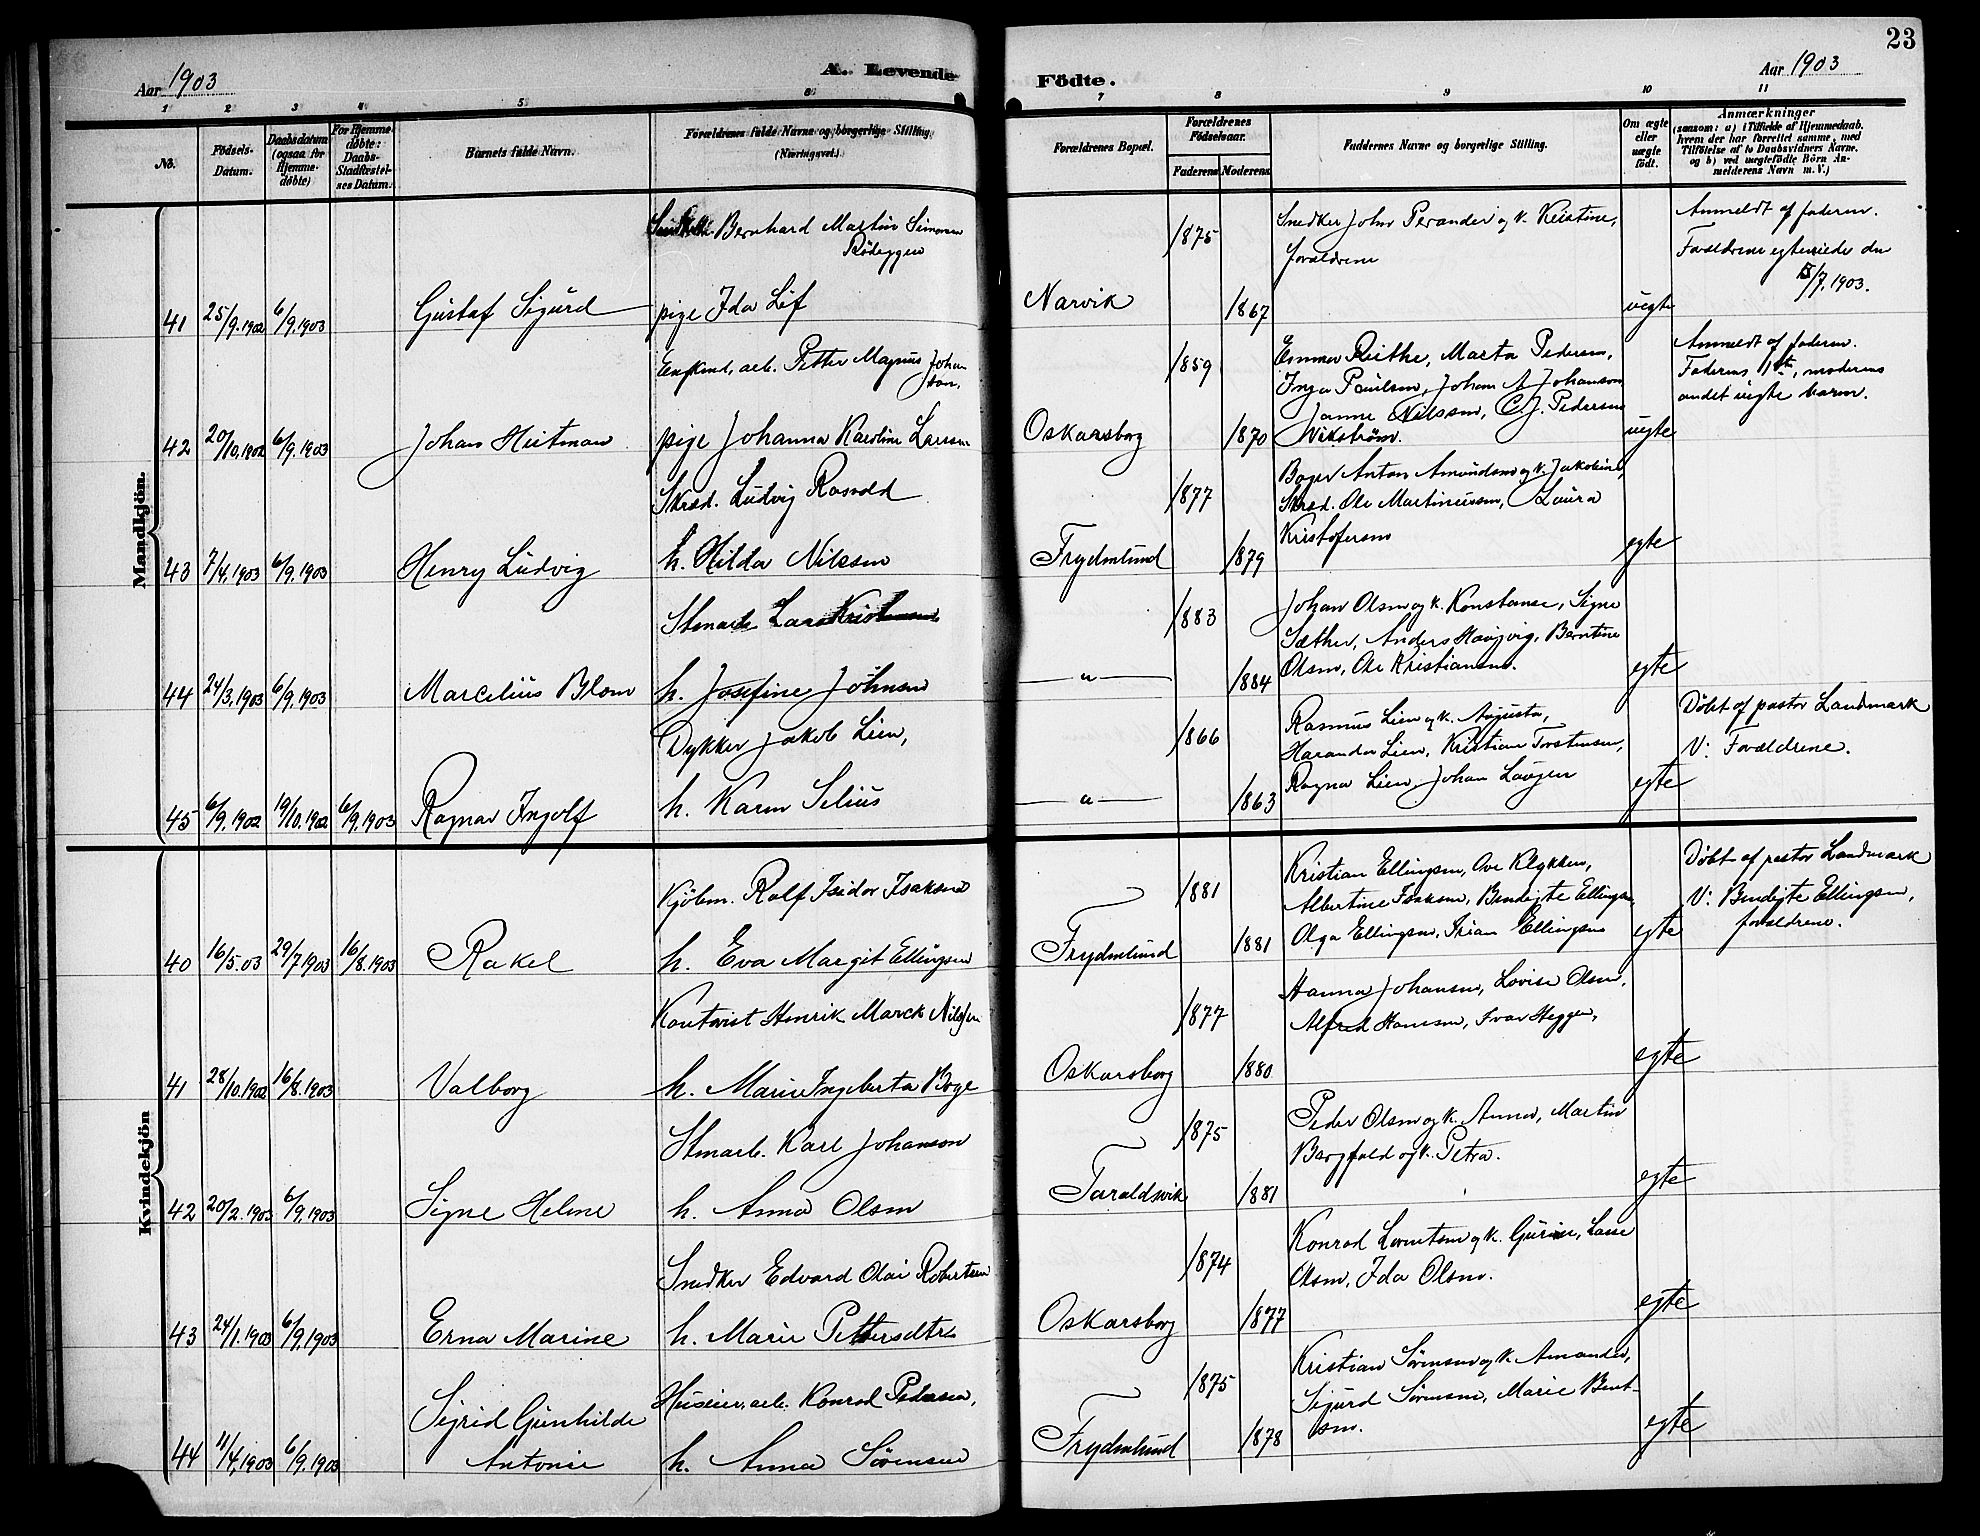 23
Aar 1903
A. Levende
Födte.
Aar 1903
1 2 3 4 5 6 7 8 9 10 11
No.
Födsels-Datum.
Daabsdatum (ogsaa for Hjemmedöbte)
For Hjemmedöbte: Daabs-Stadfæstelses Datum.
Barnets fulde Navn.
Forældrenes fulde Navne og borgerlige Stilling. (Næringsvei.)
Forældrenes Bopæl.
Forældrenes Födselsaar.
Faderens Moderens
Faddernes Navne og borgerlige Stilling.
Om ægte eller uægte födt.
Anmærkninger
(saasom: a) i Tilfælde af Hjemmedaab, hvem der har forrettet samme, med Tilföielse af to Daabsvidners Navne, og b) ved uægtefödte Börn Anmelderens Navn m. V.)
Mandkjön.
Bernhard Martin Simonsen
Rødeggen
1875
Snedker John Perander og k. Kristine,
forældrene
Anmeldt af faderen.
Forældrene egteviede den
/7, 1903.
41 25/9. 1902 6/9. 1903 Gustaf Sigurd pige Ida Löf Narvik 1867 uegte
Enkem. arb. Petter Magnus Johanson.
1859
Emma Reithe, Marta Pedersen,
Inga Paulsen, Johan A Johanson
Janne Nilssen, C. J. Pedersen
Wikstrøm.
Anmeldt af faderen.
Faderens 1ste, moderens
andet uegte barn.
42 20/10. 1902 6/9. 1903 Johan Hartman pige Johanna Karoline Larsen Oskarsborg 1870 uegte
Skræd. Ludvig Rasvold
1877
Bager Anton Amundsen og k. Jakobine,
Skræd. Ole Martinussen, Laura
Kristofersen
43 7/4. 1903 6/9. 1903 Henry Ludvig h. Hilda Nilssen Frydenlund 1879 egte
Stenarb. Lars Kristensen
1883
Johan Olsen og k. Konstanse, Signe
Sæther, Anders Haugvig, Berntine
Olsen, Ole Kristiansen.
44 24/3. 1903 6/9. 1903 Marcelius Blom h. Josefine Johnsen — " — 1884 egte
Dykker Jakob Lien,
1866
Rasmus Lien og k. Augusta,
Harander Lien, Kristian Torstensen,
Ragna Lien, Johan Laugen
Døbt af pastor Landmark
V: Forældrene.
45 6/9. 1902 19/10. 1902 6/9. 1903 Ragnar Ingolf h. Karen Selius — " — 1863 egte
Kvindekjön
Kjöbm. Rolf Isidor Isaksen
1881
Kristian Ellingsen, Ove Klykken,
Albertine Isaksen, Bendigte Ellingsen,
Olga Ellingsen, Ellingsen
Døbt af pastor Landmark
V: Bendigte Ellingsen,
forældrene.
40 16/5. 03 29/7. 1903 16/8. 1903 Rakel h. Eva Margit Ellingsen Frydenlund 1881 egte
Kontorist Henrik Marck Nilssen
1877
Hanna Johansen, Lovise Olsen,
Alfred Hansen, Ivar Heggen,
41 28/10. 1902 16/8. 1903 Valborg h. Marie Ingeberta Boge Oskarsborg 1880 egte
Stenarb. Karl Johanson
1875
Peder Olsen og k. Anna, Martin
Bergfald og k. Petra.
42 20/2. 1903 6/9. 1903 Signe Helene h. Anna Olsen Taraldsvik 1881 egte
Snedker Edvard Olai Robertsen
1874
Konrad Lorentsen og k. Gurine, Lasse
Olsen, Ida Olsen.
43 24/1. 1903 6/9. 1903 Erna Marine h. Marie Pettersdtr Oskarsborg 1877 egte
Huseier, arb. Konrad Pedersen,
1875
Kristian Sørensen og k. Amanda,
Sigurd Sørensen, Marie Bentsen.
44 11/4. 1903 6/9. 1903 Sigrid Gunhilde Antonie h. Anna Sørensen Frydenlund 1878 egte